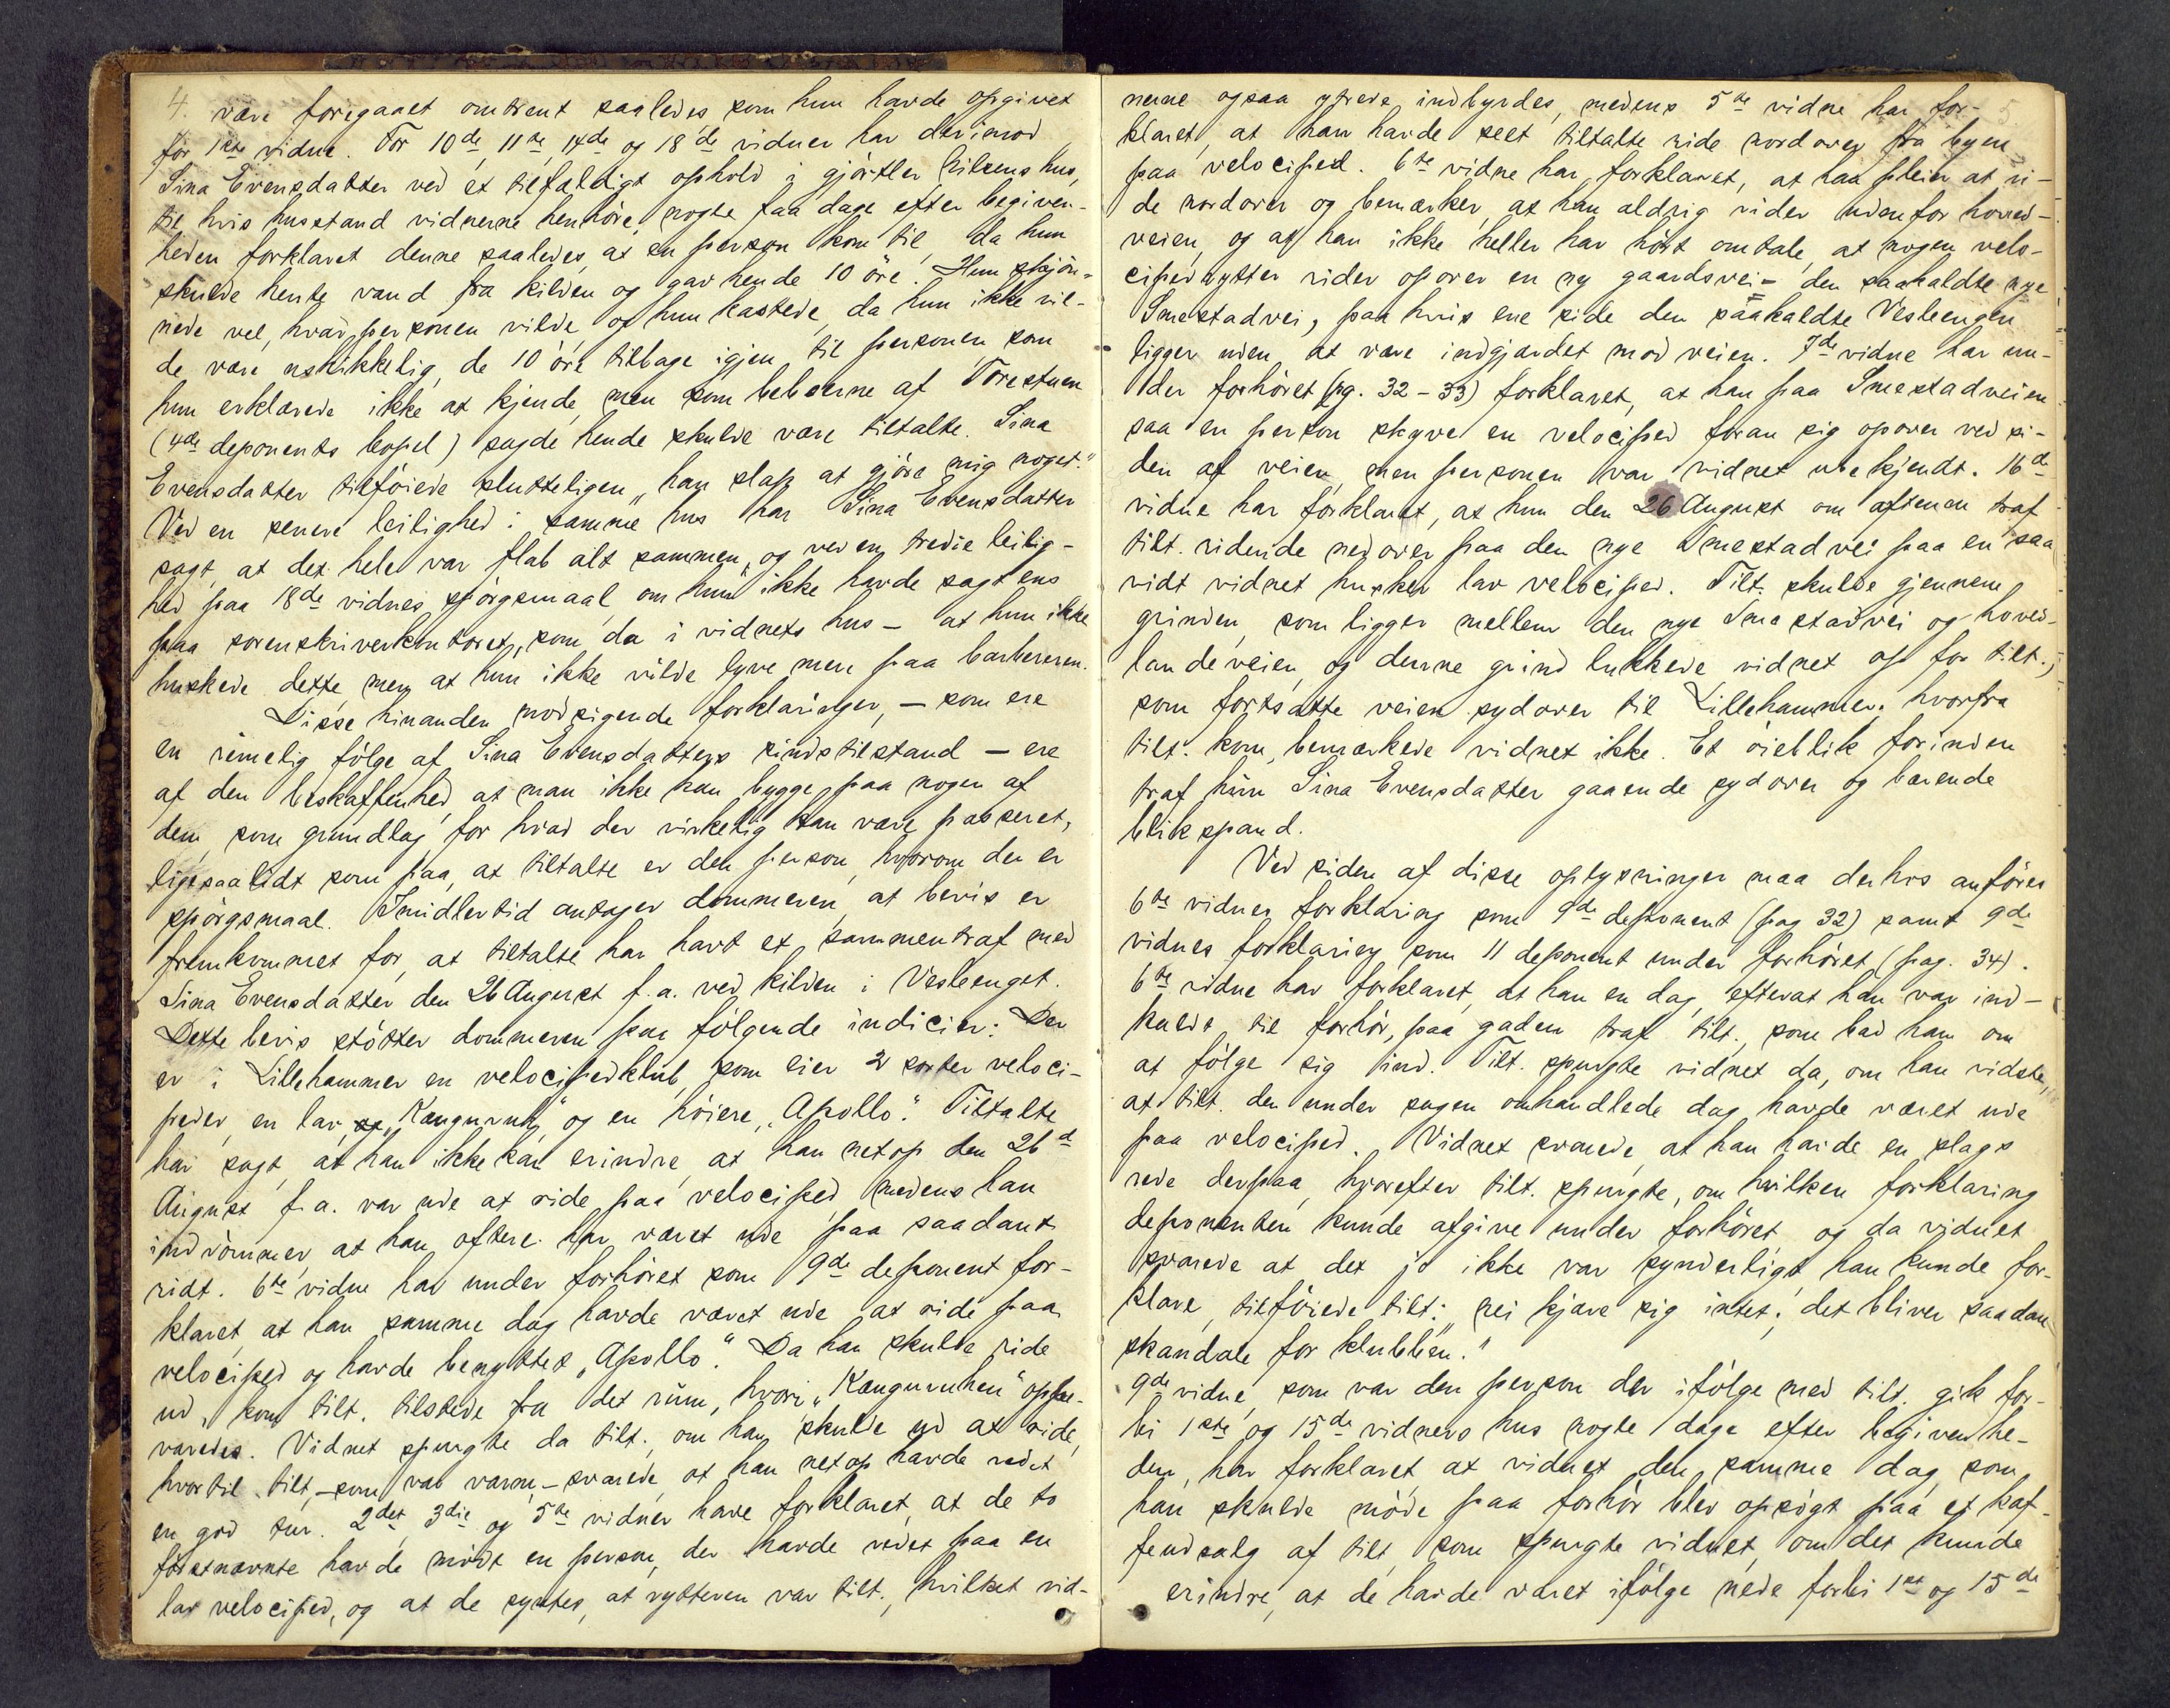 4.
være foregaaet omtrent saaledes som hun havde opgivet
for 1ste vidne. For 10de, 11te, 14de og 18de vidner har derimod
Sina Evensdatter ved et tilfældigt ophold i gjørtler Nilsens hus,
til hvis husstand vidnerne henhöre, nogle faa dage efter begiven-
heden forklaret denne saaledes, at en person kom til, da hun
skulde hente vand fra kilden og gav hende 10 öre. Hun skjön-
nede vel, hvad personen vilde, og hun kastede, da hun ikke vil-
de være uskikkelig, de 10 öre tilbage igjen til personen som
hun erklærede ikke at kjende, men som beboerne af Torestuen
(4de deponents bopel) sagde hende skulde være tiltalte. Sina
Evensdatter tilföiede slutteligen "han slap at gjöre mig noget."
Ved en senere leilighed i samme hus har Sina Evensdatter
sagt, at det hele var flab alt sammen, og ved en tredie leilig-
hed paa 18de vidnes spörgsmaal om hun ikke havde sagt ens
paa sorenskriverkontoret, som da i vidnets hus - at hun ikke
huskede dette, men at hun ikke vilde lyve mere paa barbereren.
Disse hinanden modsigende forklaringer, - som ere
en rimelig fölge af Sina Evensdatters sindstilstand - ere
af den beskaffenhed, at man ikke kan bygge paa nogen af
dem, som grundlag for hvad der virkelig kan være passeret,
ligesaalidt som paa, at tiltalte er den person, hvorom der er
spörgsmaal. Imidlertid antager dommeren, at bevis er
fremkommet for, at tiltalte har havt et sammentraf med
Sina Evensdatter den 26 August f.a. ved kilden i Vesleenget.
Dette bevis stötter dommeren paa fölgende indicier: Der
er i Lillehammer en velocipedklub, som eier 2 sorter veloci-
peder, en lav, "Kænguruh," og en höiere, "Apollo." Tiltalte
har sagt, at han ikke kan erindre, at han netop den 26d
August f.a. var ude at ride paa velociped, medens han
indrömmer, at han oftere har været ude paa saadant
ridt. 6te vidne har under forhöret som 9de deponent for-
klaret, at han samme dag havde været ude at ride paa
velociped og havde benyttet "Apollo." Da han skulde ride
ud, kom tilt. tilstede fra det rum, hvori "Kænguruhen" opbe-
varedes. Vidnet spurgte da tilt., om han skulde ud at ride,
hvortil tilt, - som var varm, - svarede, at han netop havde redet
en god tur. 2det, 3die og 5te vidner have forklaret, at de to
förstnævnte havde mödt en person, der havde redet paa en
lav velociped, og at de syntes, at rytteren var tilt., hvilket vid-
nerne ogsaa ytrede indbyrdes, medens 5te vidne har for-
klaret, at han havde seet tiltalte ride nordover fra byen
paa velociped. 6te vidne har forklaret, at han pleier at ri-
de nordover og bemærker, at han aldrig rider udenfor hoved-
veien, og at han ikke heller har hört omtale, at nogen velo-
cipedrytter rider opover en ny gaardsvei - den saakaldte nye
Smestadvei, paa hvis ene side den saakaldte Vesleengen
ligger uden at være indgjærdet mod veien. 7de vidne har un-
der forhöret (pg. 32-33) forklaret, at han paa Smestadveien
saa en person skyve en velociped foran sig opover ved si-
den af veien, men personen var vidnet ubekjendt. 16de
vidne har forklaret, at hun den 26 August om aftenen traf
tilt. ridende nedover paa den nye Smestadvei paa en saa
vidt vidnet husker lav velociped. Tilt. skulde gjennem
grinden, som ligger mellem den nye Smestadvei og hoved-
landeveien, og denne grind lukkede vidnet op for tilt.,
som fortsatte veien sydover til Lillehammer. hvorfra
tilt. kom, bemærkede vidnet ikke. Et öieblik forinden
traf hun Sina Evensdatter gaaende sydover og bærende
blikspand.
Ved siden af disse oplysninger maa derhos anföres
6te vidnes forklaring som 9de deponent (pag 32) samt 9de
vidnes forklaring som 11 deponent under forhöret (pag. 34).
6te vidne har forklaret, at han en dag, efterat han var ind-
kaldt til forhör, paa gaden traf tilt., som bad ham om
at fölge sig ind. Tilt. spurgte vidnet da, om han vidste,
at tilt. den under sagen omhandlede dag havde været ude
paa velociped. Vidnet svarede, at han havde en slags
rede derpaa, hvorefter tilt. spurgte, om hvilken forklaring
deponenten kunde afgive under forhöret og da vidnet
svarede at det jo ikke var synderligt han kunde for-
klare, tilföiede tilt: "nei kjære sig intet; det bliver saadan
skandale for klubben."
9de vidne, som var den person der ifölge med tilt. gik for-
bi 1ste og 15de vidners hus nogle dage efter begivenhe-
den, har forklaret, at vidnet den samme dag, som
han skulde möde paa forhör blev opsögt paa et kaf-
feudsalg af tilt, som spurgte vidnet, om det kunde
erindre, at de havde været ifölge nede forbi 1ste og 15de